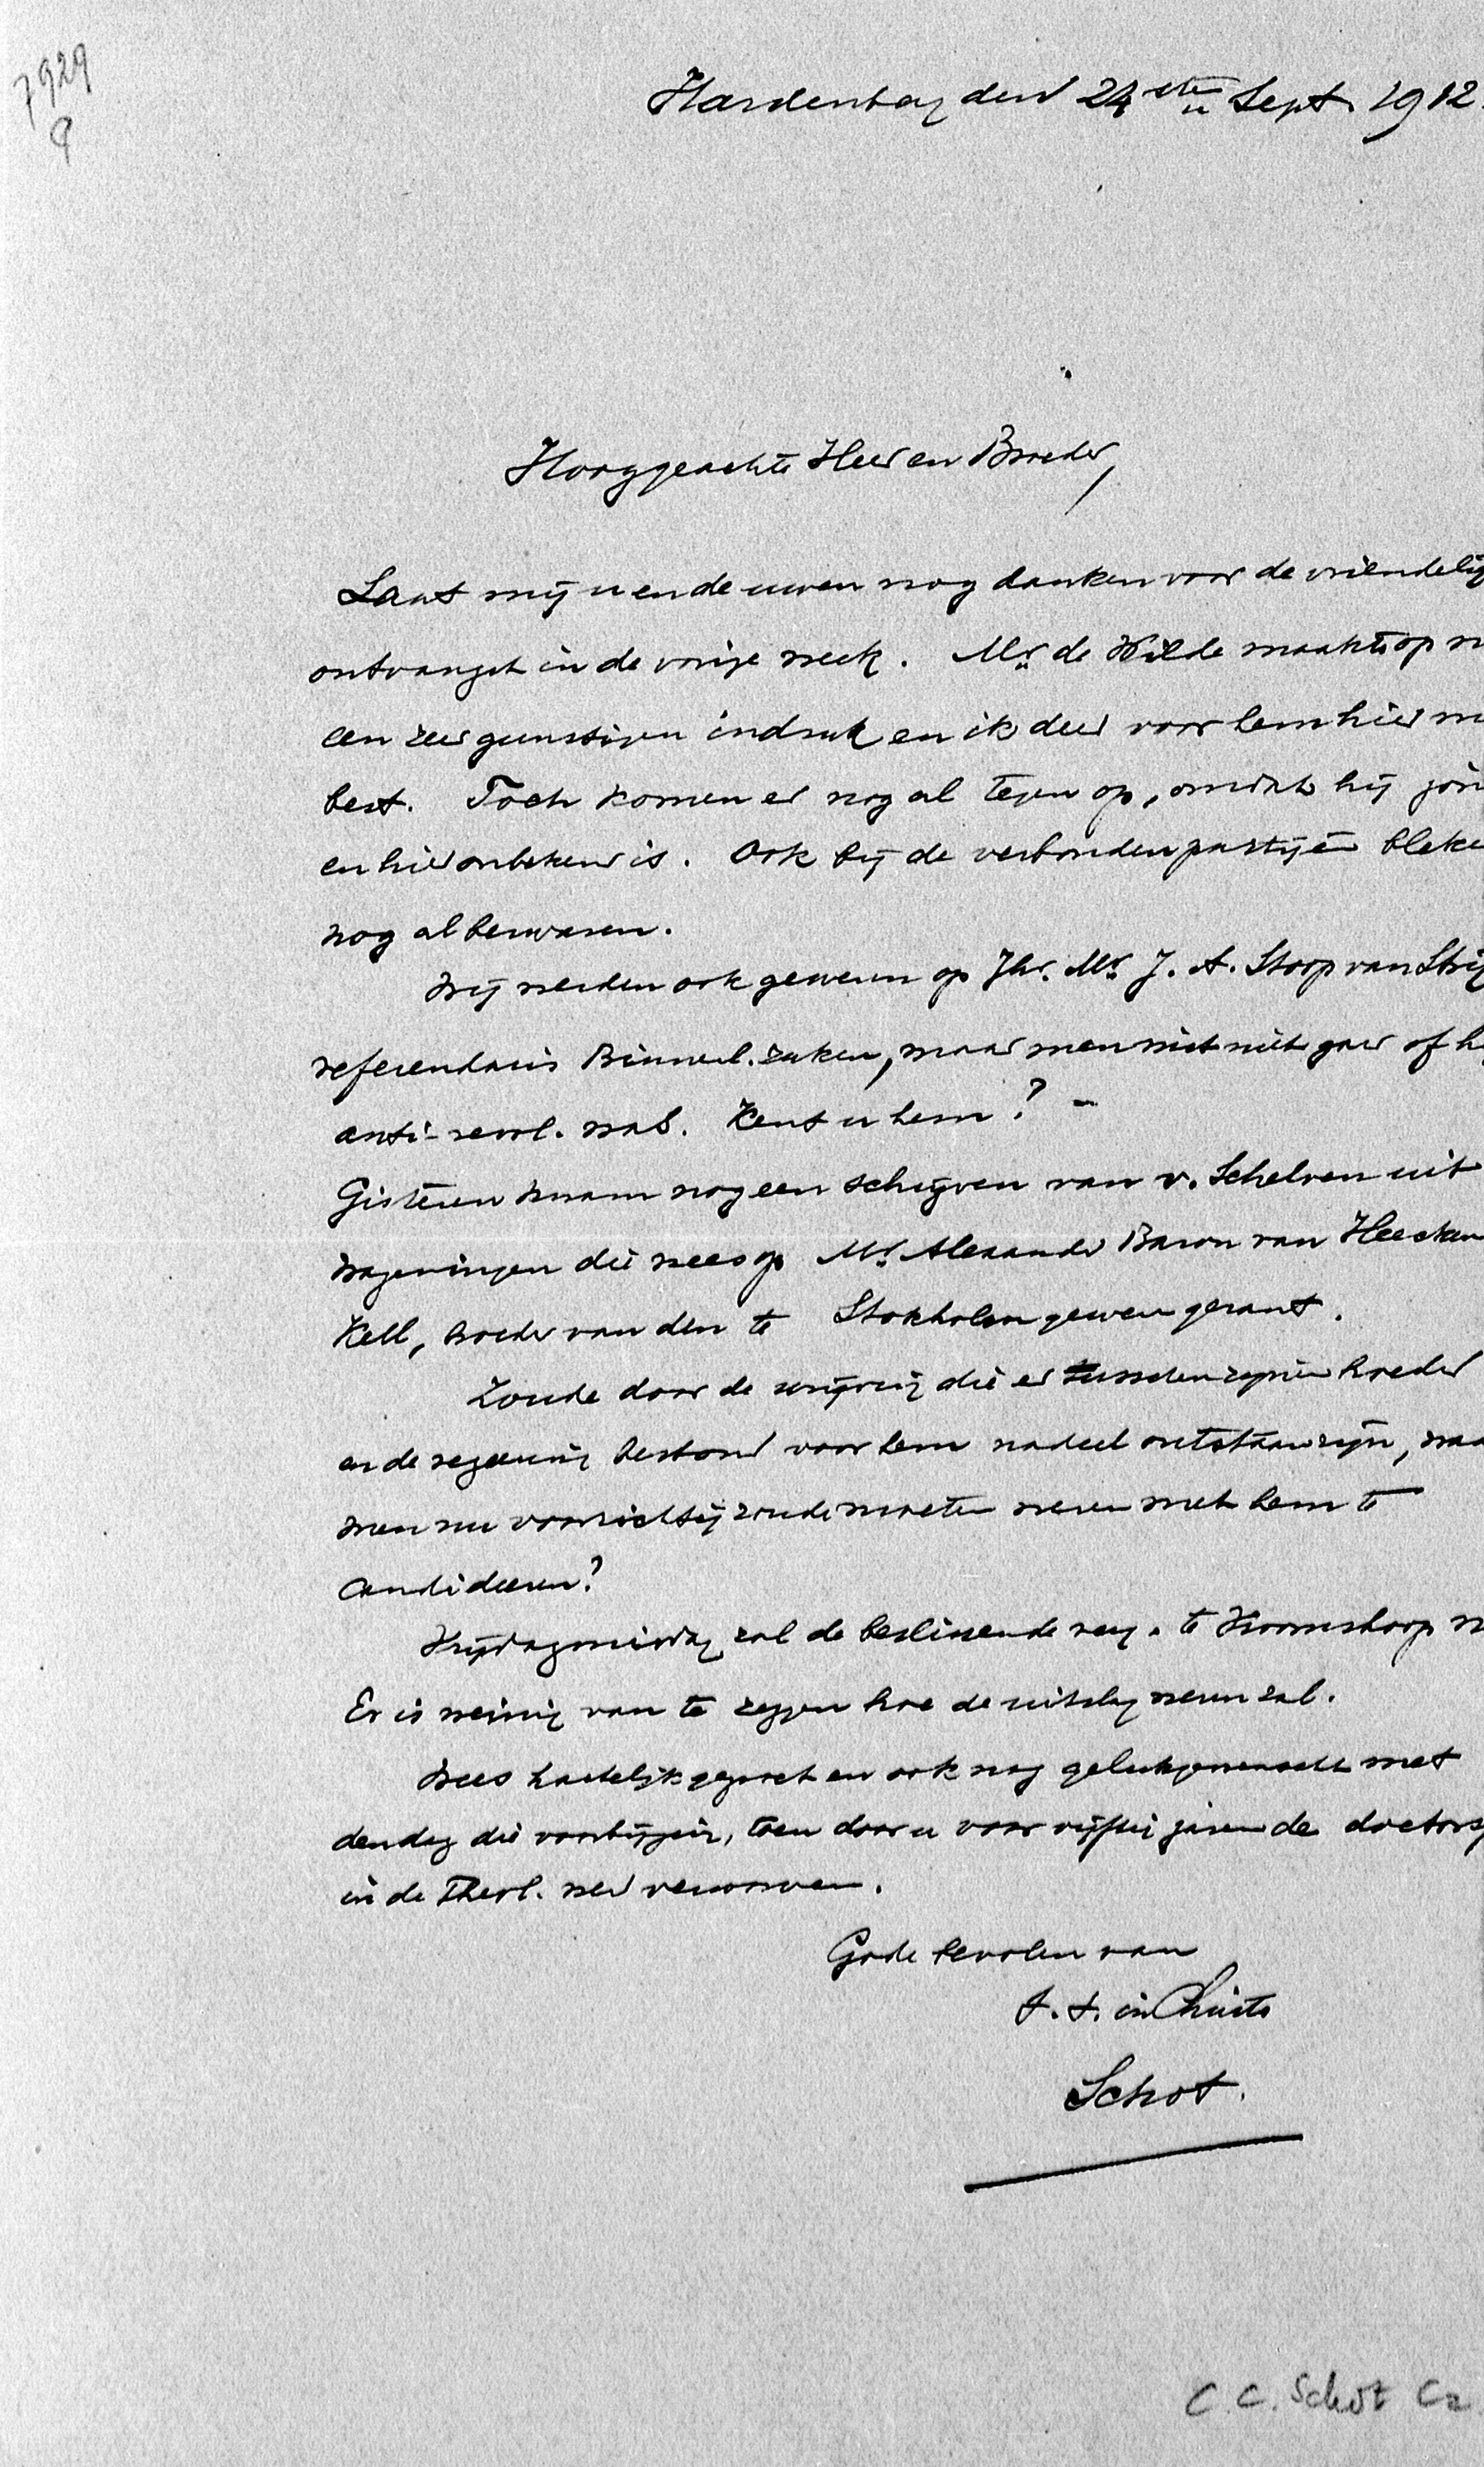 7929
9
Hardenberg den 24sten Sept. 1912.
Hooggeachte Heer en Broeder,
Laat mij u en de uwen nog danken voor de vriendelij
ontvangst in de vorige week. Mr. de Wilde maakte op m
een zeer gunstigen indruk en ik deed voor hem hier m
best. Toch komen er nog al tegen op, omdat hij jon
en hier onbekend is. Ook bij de verbonden partijen bleke
nog al bezwaren.
Wij werden ook gewezen op Jhr. Mr. J. A. Stoop van Strij
referendaris Binnenl. zaken, maar men wist niet goed of hij
anti-revol. was. Kent u hem? -
Gisteren kwam nog een schrijven van v. Schelven uit
Wageningen die wees op Mr. Alexander Baron van Heecker
Kell, broeder van den te Stokholm gewezen gezant.
Zoude door de wrijving die er tusschen zijnen broeder
en de regeering bestond voor hem nadeel ontstaan zijn, waa
men nu voorzichtig zoude moeten wezen met hem te
candideeren?
Vrijdagmiddag zal de beslissende verg. te Vroomshoop w
Er is weinig van te zeggen hoe de uitslag wezen zal.
Wees hartelijk gegroet en ook nog gelukgewenscht met
den dag die voorbijging, toen door u voor vijftig jaren de doctors
in de Theol. werd verworven.
Gode bevolen van
t. t. in Christo
Schot.
C. C. Schot Cz